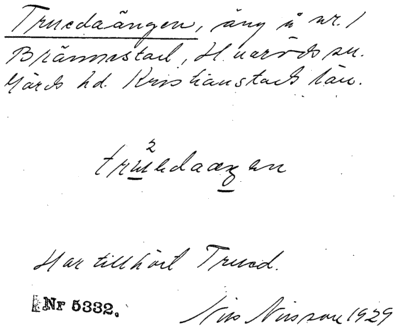 Truedaängen, äng å nr. 1
Brännestad, Hvaröds sn.
Gärds hd. Kristianstads län.
Har tillhört Trued.
Nr 5332.
Nils Nilsson 1929